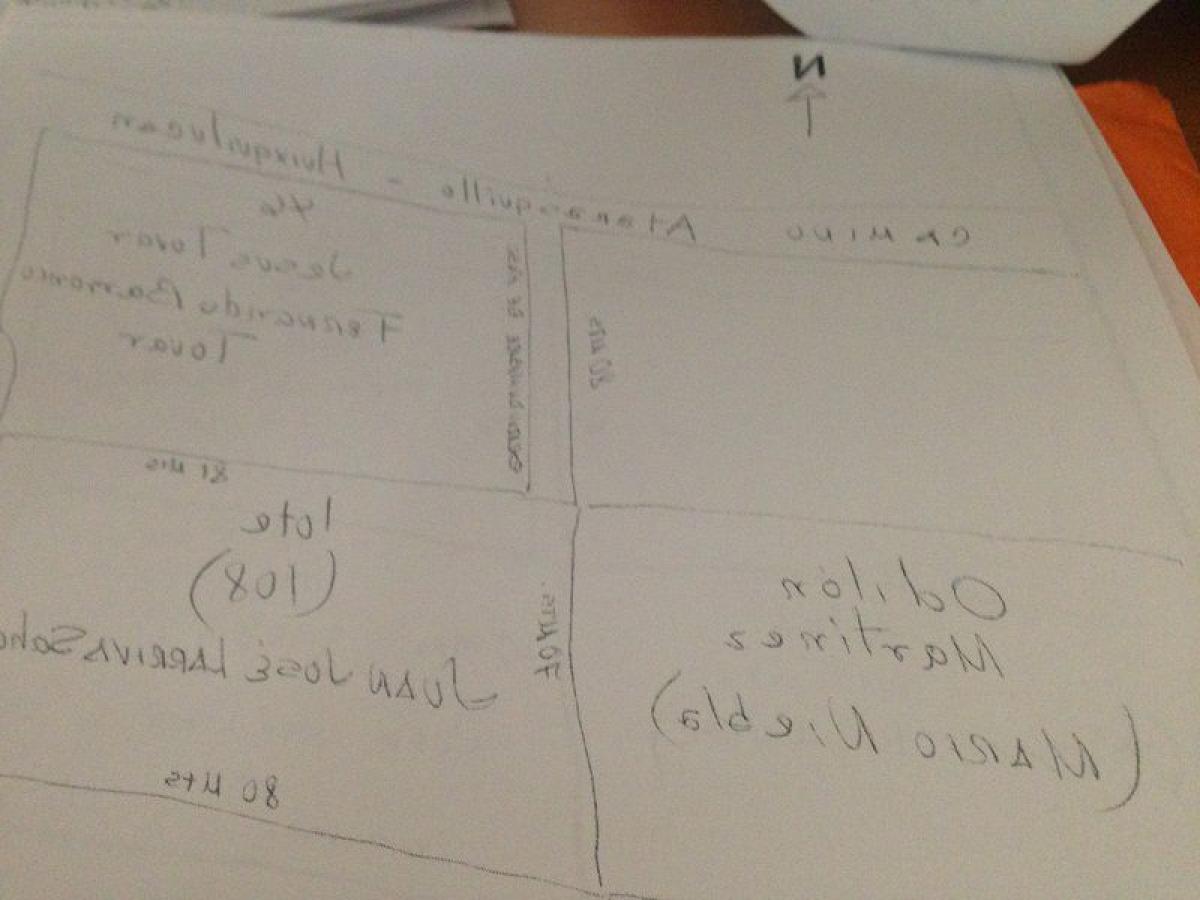 N
CAMINO Atarasquillo - Huixquilucan
Jesus Tovar
Fernando Barranco
Tovar
80 MTS
81 Mts
lote
(108)
JUAN JOSÉ LARRIVA
70 MTS.
80 Mts
Odilón
Martines
(MARIO Niebla)